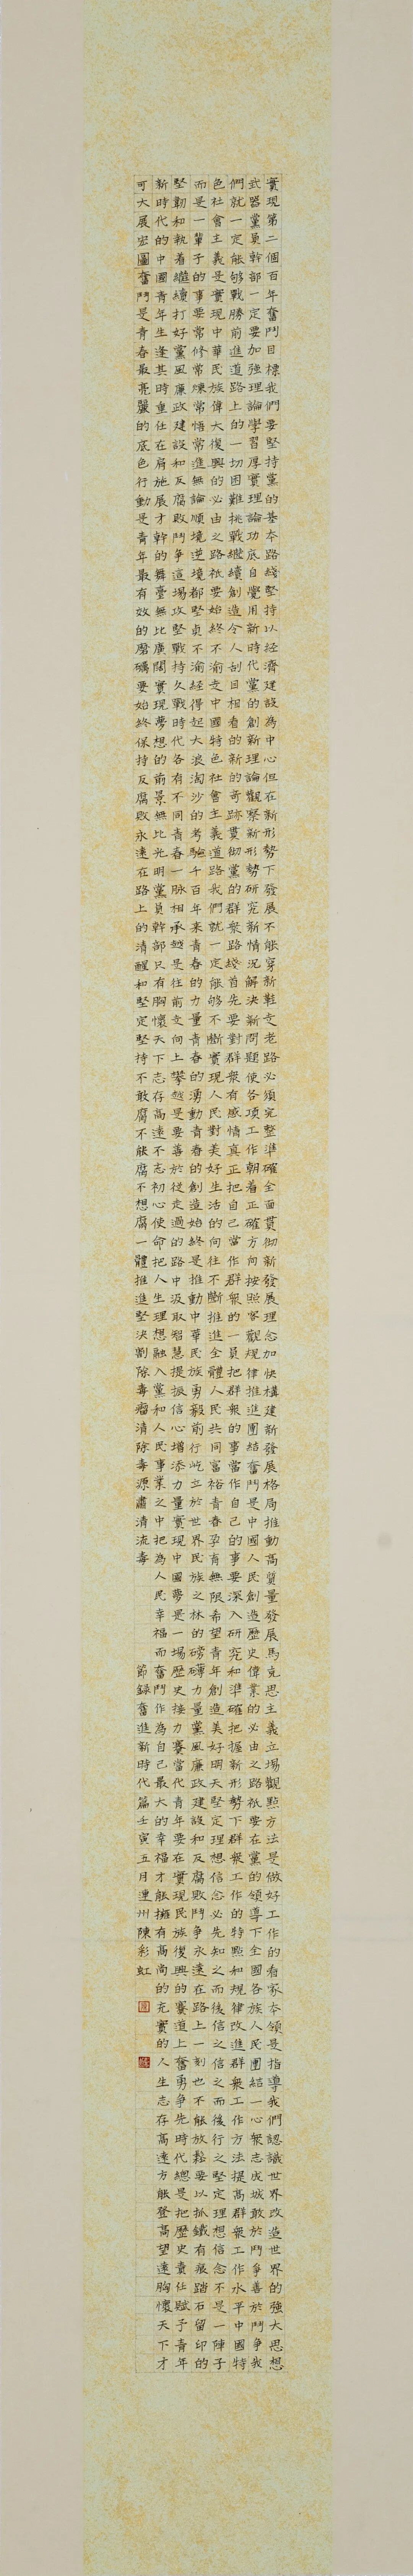 實現第二個百年奮鬥目標我們要堅持黨的基本路綫堅持以經濟建設為中心但在新形勢下發展不能穿新鞋走老路必須完整準確全面貫彻新發展理念加快構建新發展格局推動高質量發展馬克思主義立場觀點方法是做好工作的看家本領是指導我們認識世界改造世界的強大思想
武器黨員幹部一定要加強理論學習厚實理論功底自覺用新時代黨的創新理論觀察新形勢研究新情況解決新問題使各項工作朝着正確方向按照客觀規律推進團結奮鬥是中國人民創造歷史偉業的必由之路衹要在黨的領導下全國各族人民團結一心衆志成城敢於鬥爭善於鬥爭我
們就一定能够戰勝前進道路上的一切困難挑戰繼續創造令人刮目相看的新的奇跡貫彻黨的群衆路綫首先要對群衆有感情真正把自己當作群衆的一員把群衆的事當作自己的事要深入研究和準確把握新形勢下群衆工作的特點和規律改進群衆工作方法提高群衆工作水平中國特
色社會主義是實現中華民族偉大復興的必由之路衹要始終不渝走中國特色社會主義道路我們就一定能够不斷實現人民對美好生活的向往不斷推進全體人民共同富裕青春孕育無限希望青年創造美好明天堅定理想信念必先知之而後信之信之而後行之堅定理想信念不是一陣子
而是一輩子的事要常修常煉常悟常進無論順境逆境都堅貞不渝經得起大浪淘沙的考驗千百年來青春的力量青春的湧動青春的創造始終是推動中華民族勇毅前行屹立於世界民族之林的磅礴力量黨風廉政建設和反腐敗鬥爭永遠在路上一刻也不能放鬆要以抓鐵有痕踏石留印的
堅韌和執着繼續打好黨風廉政建設和反腐敗鬥爭這場攻堅戰持久戰時代各有不同青春一脉相承越是往前走向上攀越是要善於從走過的路中汲取智慧提振信心增添力量實現中國夢是一場歷史接力賽當代青年要在實現民族復興的賽道上奮勇爭先時代總是把歷史責任賦予青年
新時代的中國青年生逢其時重任在肩施展才幹的舞臺無比廣闊實現夢想的前景無比光明黨員幹部只有胸懷天下志存高遠不忘初心使命把人生理想融入黨和人民事業之中把為人民幸福而奮鬥作為自己最大的幸福才能擁有高尚的充實的人生志存高遠方能登高望遠胸懷天下才
可大展宏圖奮鬥是青春最亮麗的底色行動是青年最有效的磨礪要始終保持反腐敗永遠在路上的清醒和堅定堅持不敢腐不能腐不想腐一體推進堅決剷除毒瘤清除毒源肅清流毒
節録奮進新時代篇壬寅五月連州陳彩虹